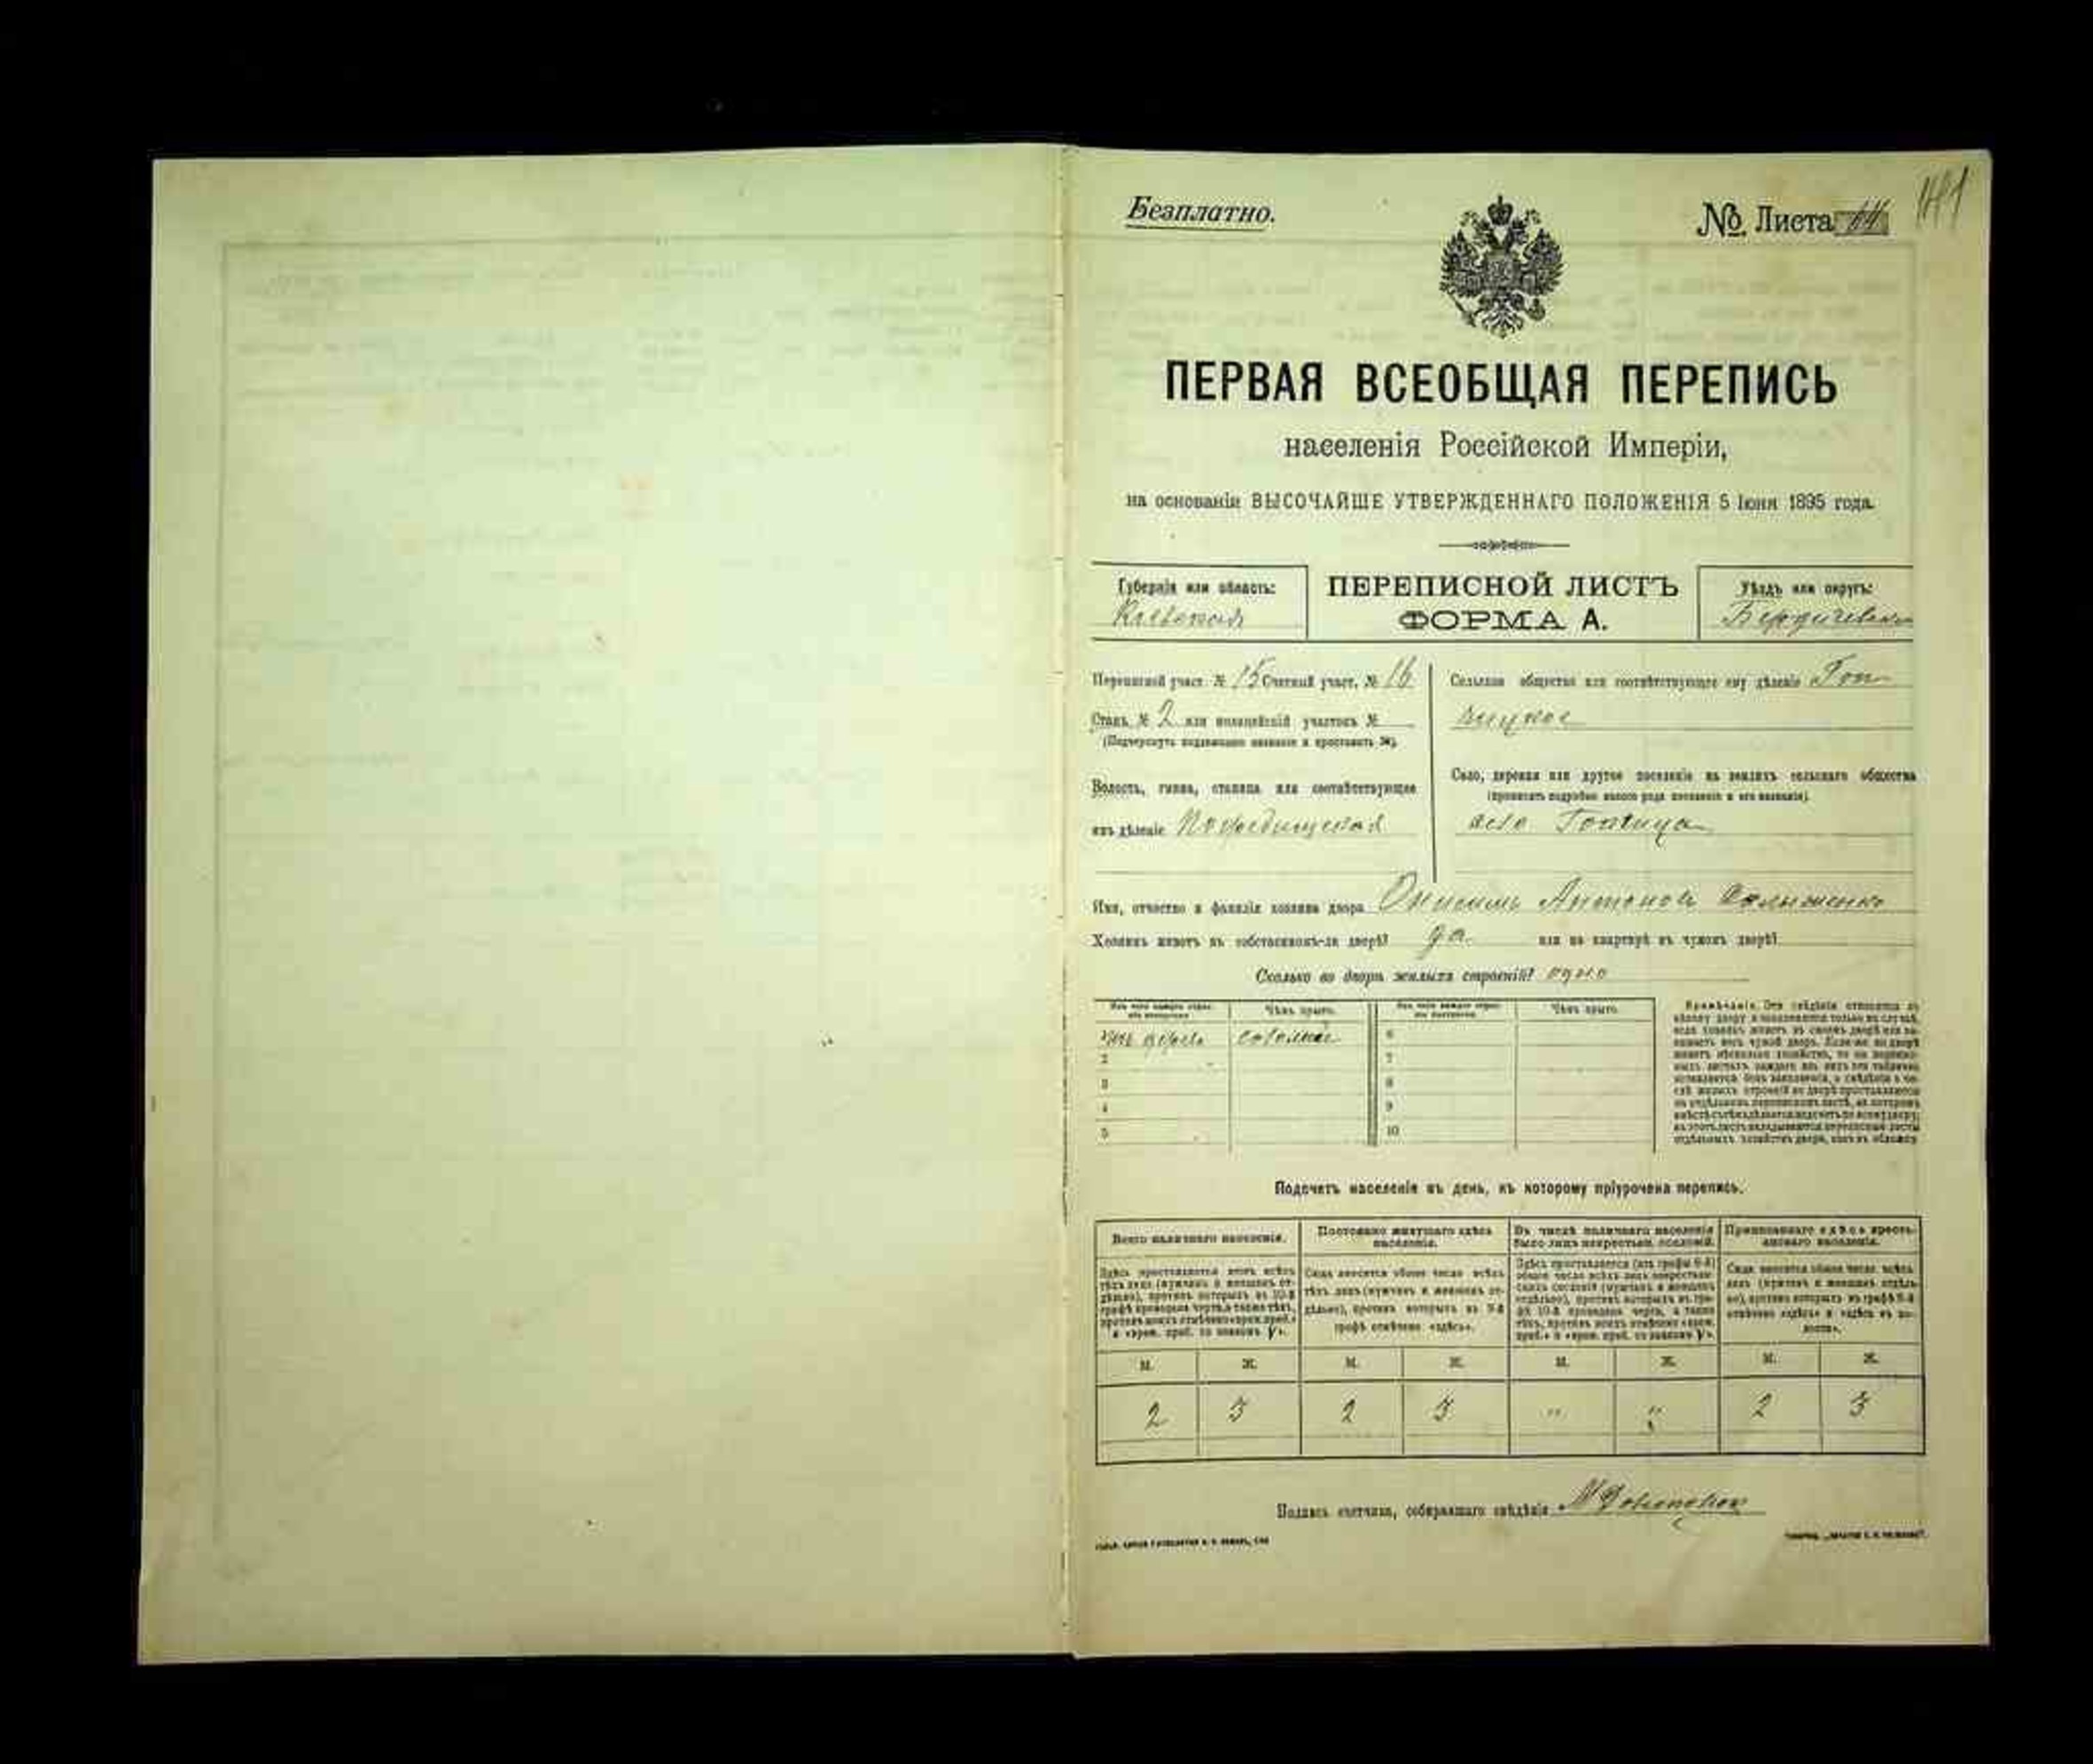 Безплатно.
№ Листа 44
141
ПЕРВАЯ ВСЕОБЩАЯ ПЕРЕПИСЬ
населенія Россійской Имперіи,
на основаніи ВЫСОЧАЙШЕ УТВЕРЖДЕННАГО ПОЛОЖЕНІЯ 5 Іюня 1895 года.
Губернія или область:
Кіевская
ПЕРЕПИСНОЙ ЛИСТЪ
ФОРМА А.
Уѣздъ или округъ:
Бердичевск
Переписной участ. № 15 Счетный участ. № 16
Станъ № 2 или полицейскій участокъ №
(Подчеркнуть подлежащее названіе и проставить №).
Волость, гмина, станица или соотвѣтствующее
имъ дѣленіе
Сельское общество или соотвѣтствующее ему дѣленіе Гоп
чицкое
Село, деревня или другое поселеніе на земляхъ сельскаго общества
(прописать подробно какого рода поселеніе и его названіе).
село Гопчица
Имя, отчество и фамилія хозяина двора Онисимъ Антоновъ
Хозяинъ живетъ въ собственномъ-ли дворѣ? да или на квартирѣ въ чужомъ дворѣ?
Сколько во дворѣ жилыхъ строеній? одно
Изъ чего каждое строе-
ніе построено.
Чѣмъ крыто.
Изъ чего каждое строе-
ніе построено.
Чѣмъ крыто.
1 изъ дерева соломой 6
2 7
3 8
4 9
5 10
Примѣчаніе. Эти свѣдѣнія относятся къ
цѣлому двору и заполняются только въ случаѣ,
если хозяинъ живетъ въ своемъ дворѣ или за-
нимаетъ весь чужой дворъ. Если-же во дворѣ
живетъ нѣсколько хозяйствъ, то на перепис-
ныхъ листахъ каждаго изъ нихъ эта табличка
оставляется безъ заполненія, а свѣдѣнія о чи-
слѣ жилыхъ строеній во дворѣ проставляются
на отдѣльномъ переписномъ листѣ, на которомъ
вмѣстѣ съ тѣмъ дѣлается подсчетъ по всему двору;
въ этотъ листъ вкладываются переписные листы
отдѣльныхъ хозяйствъ двора, какъ въ обложку.
Подсчетъ населенія въ день, къ которому пріурочена перепись.
Всего наличнаго населенія.
Постоянно живущаго здѣсь
населенія.
Въ числѣ наличнаго населенія
было лицъ некрестьян. сословій.
Приписаннаго здѣсь кресть-
янскаго населенія.
Здѣсь проставляется итогъ всѣхъ
тѣхъ лицъ (мужчинъ и женщинъ от-
дѣльно), противъ которыхъ въ 10-й
графѣ проведена черта, а также тѣхъ,
противъ коихъ отмѣчено «врем. преб.»
и «врем. преб. со знакомъ V».
Сюда вносится общее число всѣхъ
тѣхъ лицъ (мужчинъ и женщинъ от-
дѣльно), противъ которыхъ въ 9-й
графѣ отмѣчено «здѣсь».
Здѣсь проставляется (изъ графы 6-й)
общее число всѣхъ лицъ некрестьян-
скихъ сословій (мужчинъ и женщинъ
отдѣльно), противъ которыхъ въ гра-
фѣ 10-й проведена черта, а также
тѣхъ, противъ коихъ отмѣчено «врем.
преб.» и «врем. преб. со знакомъ V».
Сюда вносится общее число здѣсь
лицъ (мужчинъ и женщинъ отдѣль-
но), противъ которыхъ въ графѣ 8-й
отмѣчено «здѣсь» и «здѣсь въ во-
лости».
М. Ж. М. Ж. М. Ж. М. Ж.
2 3 2 3 " " 2 3
Подпись счетчика, собиравшаго свѣдѣнія